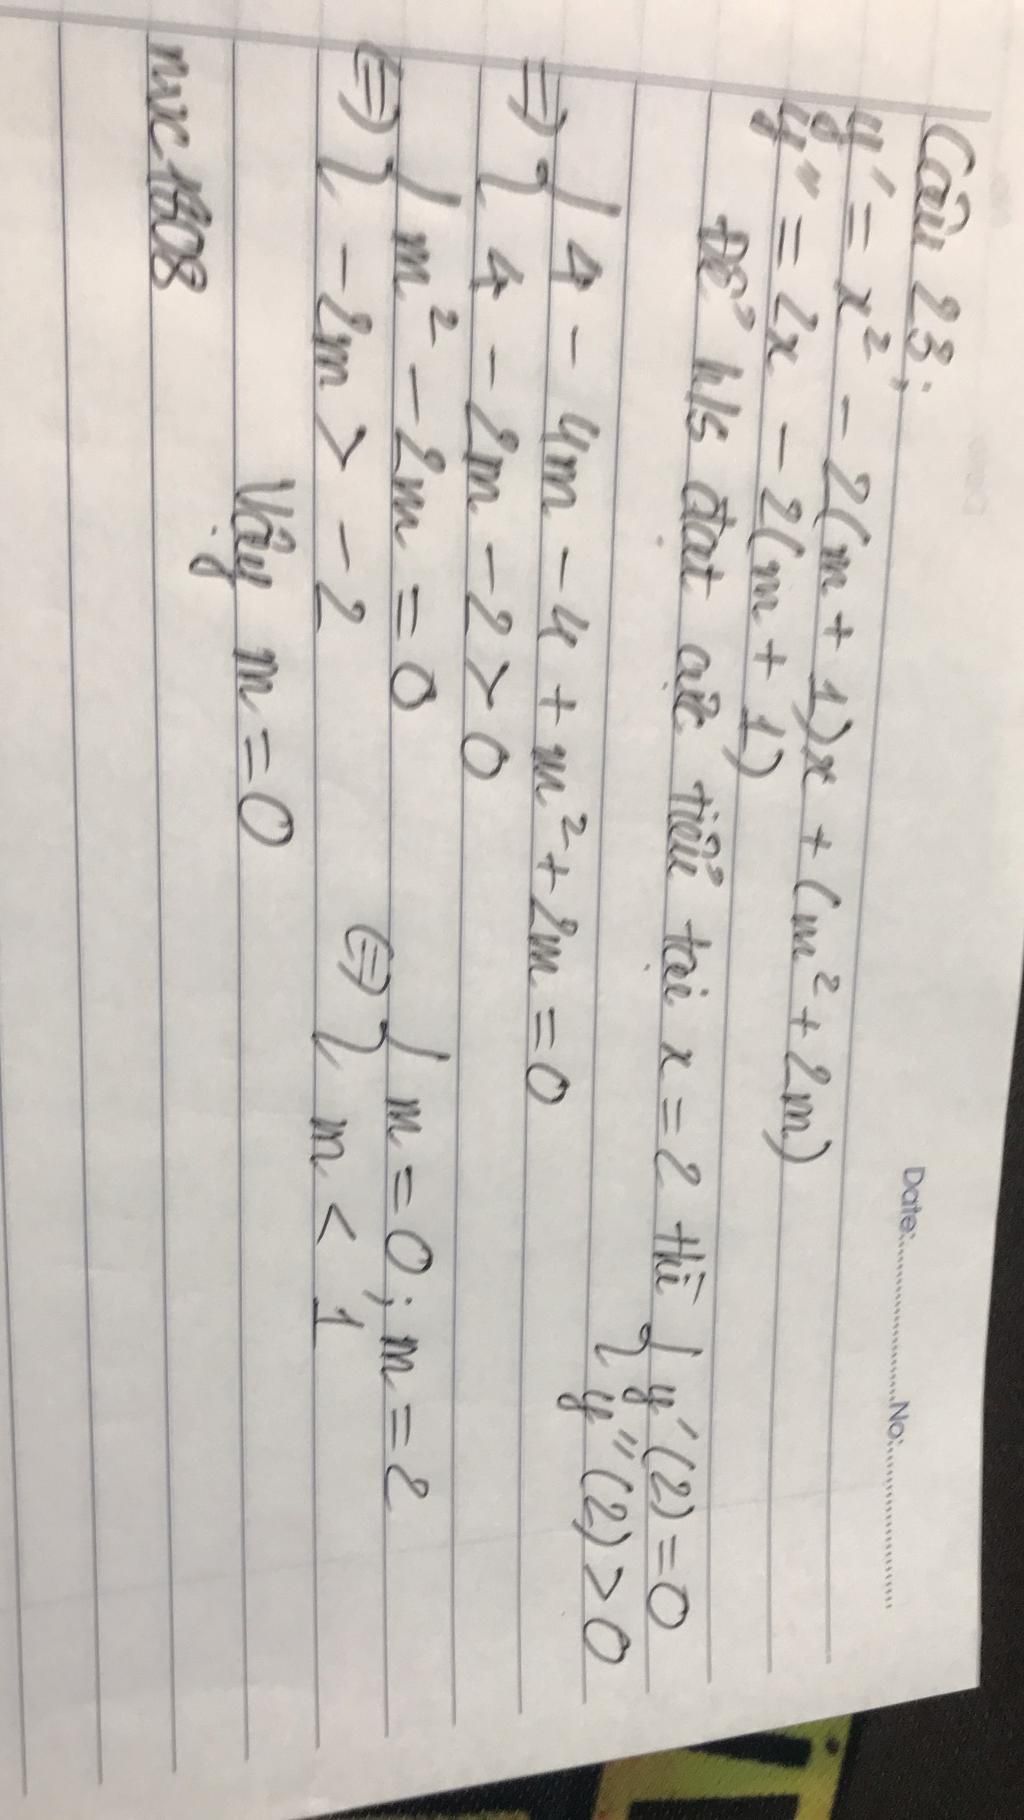 Date:..................No:..................
Câu 23:
y' = x² - 2(m + 1)x + (m² + 2m)
y" = 2x - 2(m + 1)
Để h/s đạt cực tiểu tại x = 2 thì { y'(2) = 0
y"(2) > 0
=> { 4 - 4m - 4 + m² + 2m = 0
4 - 2m - 2 > 0
<=> { m² - 2m = 0 <=> { m = 0; m = 2
-2m > -2 m < 1
Vậy m = 0